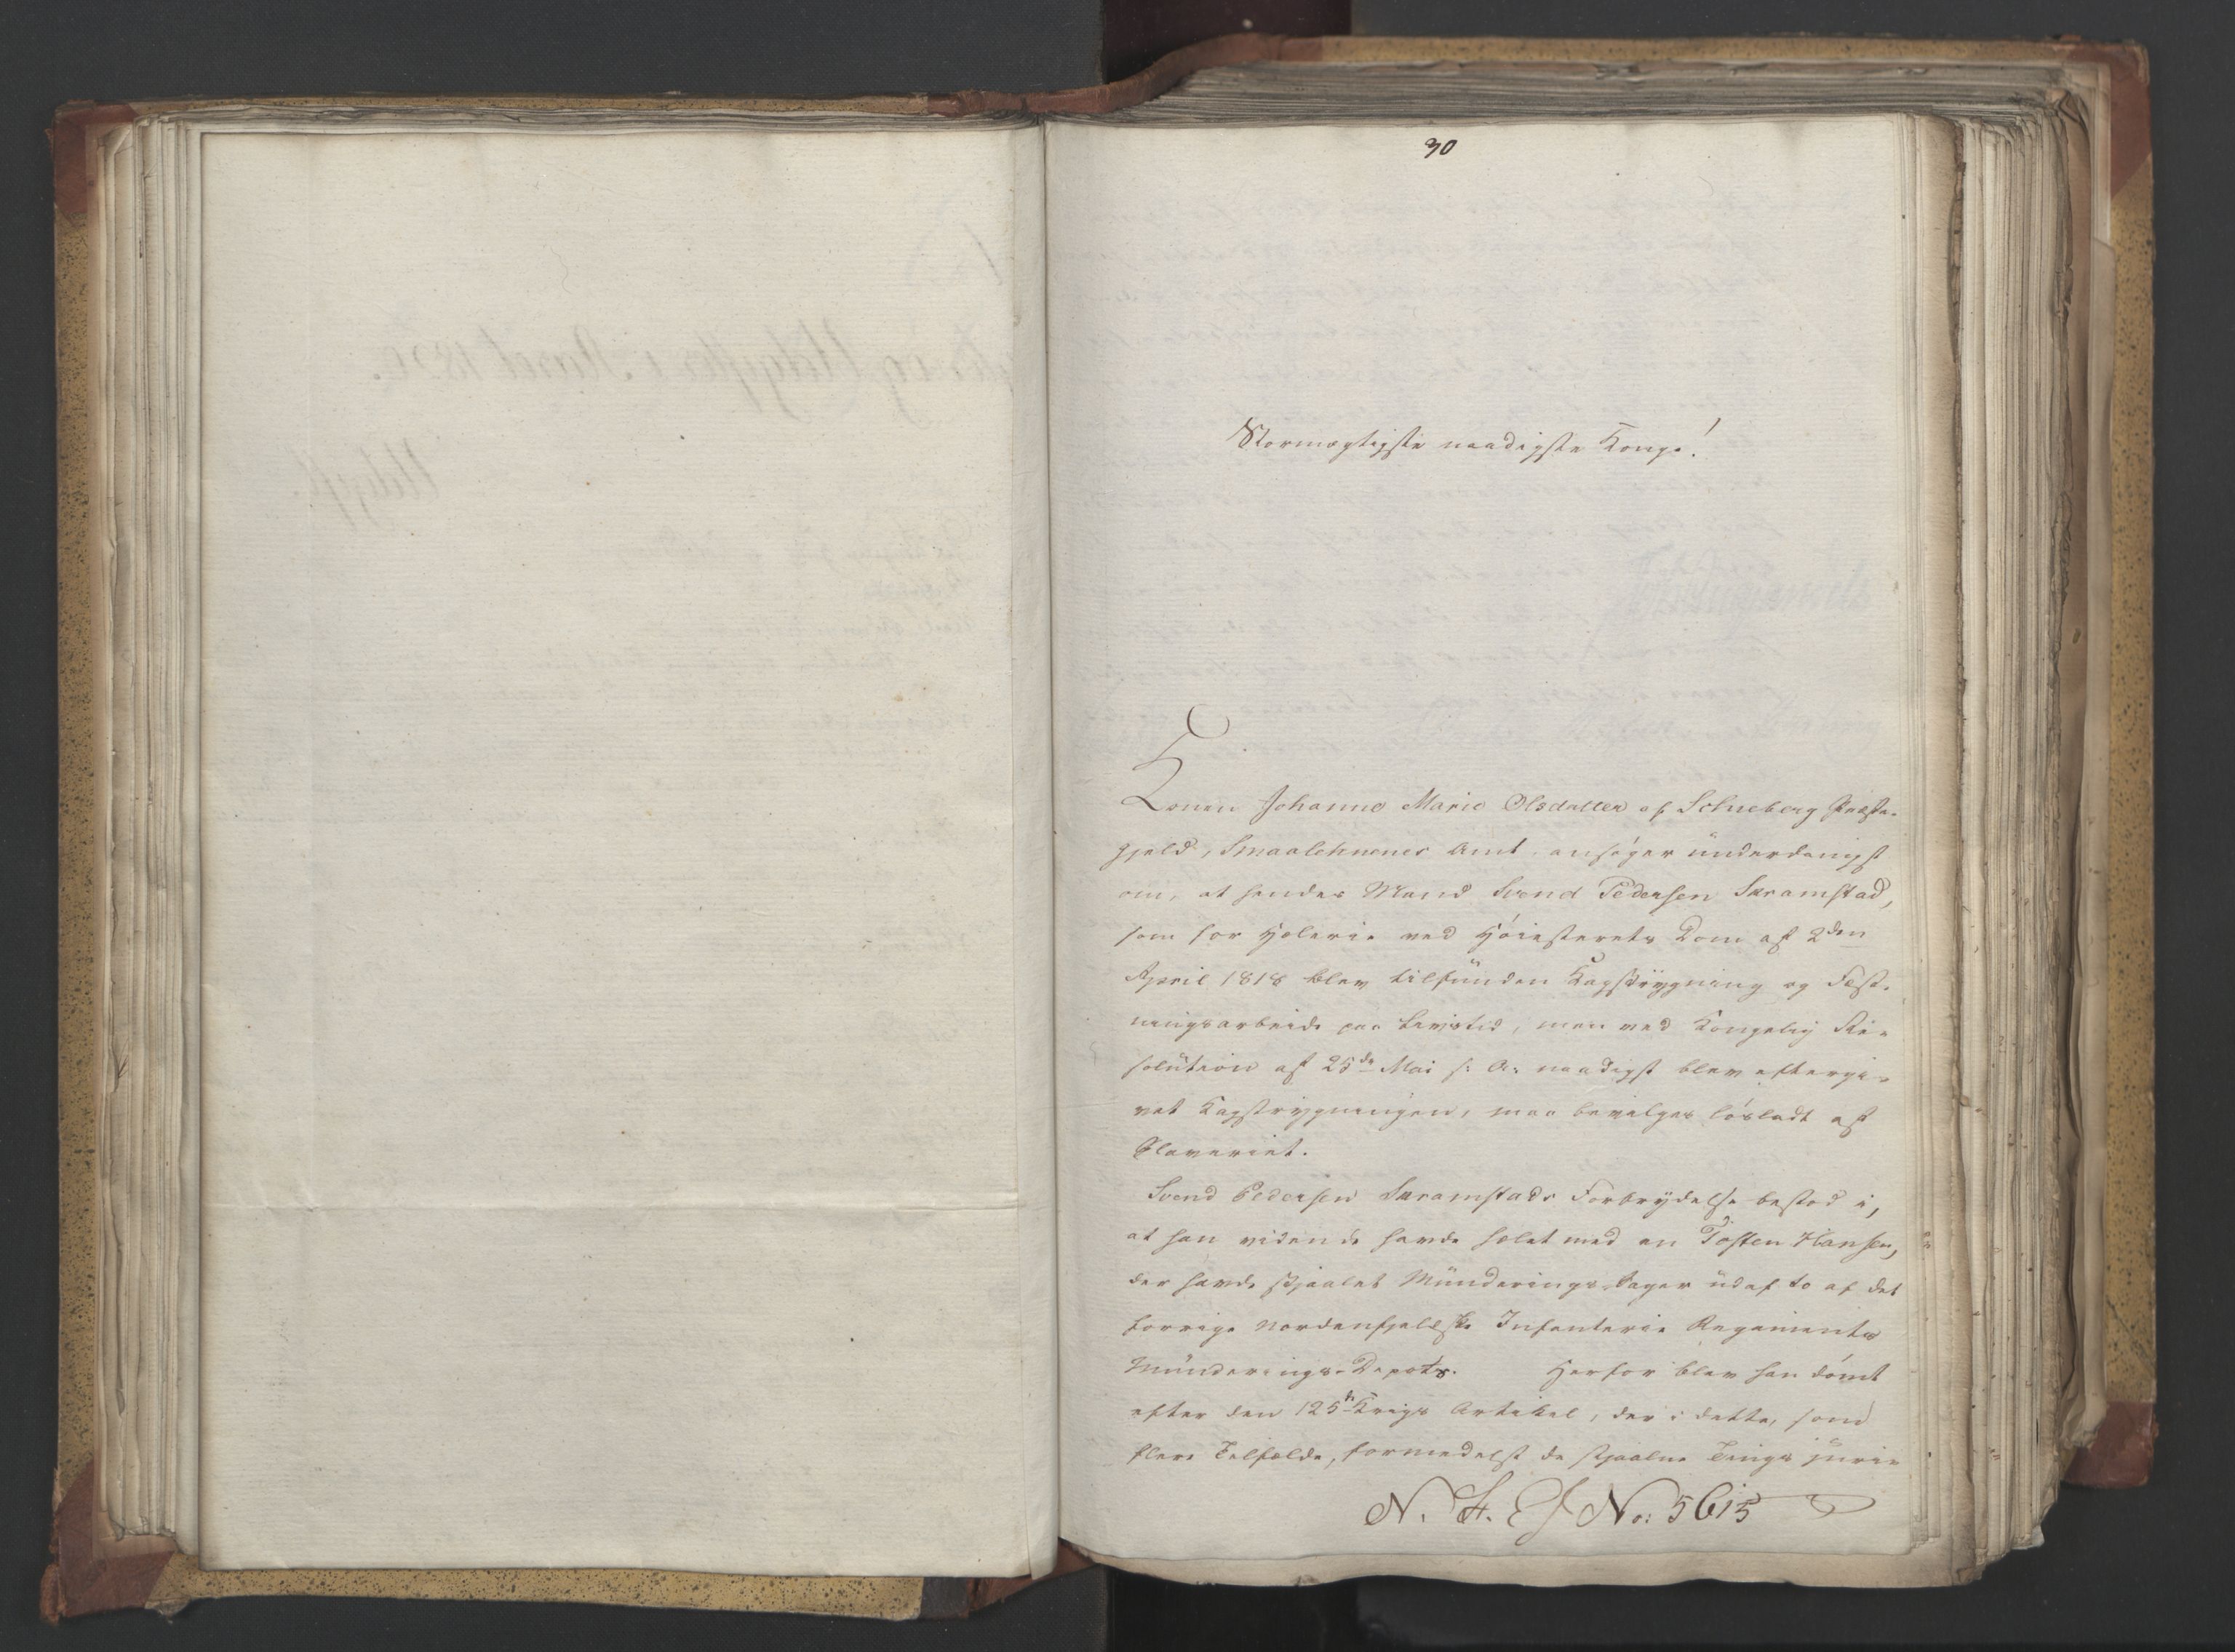 30
Stormægtigste naadigste Konge!
Konen Johanne Marie Olsdatter af Schieberg Præste-
gjeld, Smaalehnenes Amt, ansøger ünderdanigst
om, at hendes Mand Svend Pedersen Skramstad,
som for Hæleri ved Høiesterets Dom af 2den
April 1818 blev tilfünden Kagstrygning og Fæst-
ningsarbeide paa Livstid, men ved Kongelig Re-
solution af 25de Mai s: A: naadigst blev eftergi-
vet Kagstrygningen, maa bevilges løsladt af
Slaveriet.
Svend Pedersen Skramstads Forbrydelse bestod i,
at han vidende havde hælet med en Tosten Hansen,
der havde stjaalet Münderings-Sager üdaf to af det
forrige Nordenfjeldske Infanterie Regiments
Münderings-Depots. Herfor blev han dömt
efter den 125te Krigs Artikel, der i dette, som i
flere Tilfælde, formedelst de stjaalne Tings
N. 4. J No: 5615